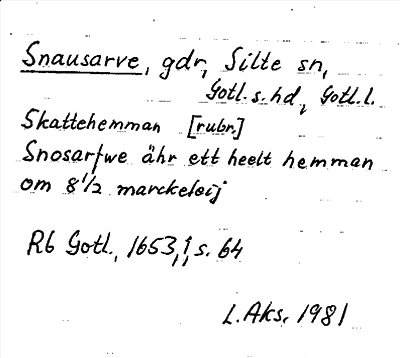 Snausarve, gdr, Silte sn,
Gotl. s. hd, Gotl. l.
Skattehemman [rubr.]
Snosarfwe ähr ett heelt hemman
om 8 1/2 marckeleij
Rb Gotl., 1653,1, s. 64
L. Aks. 1981